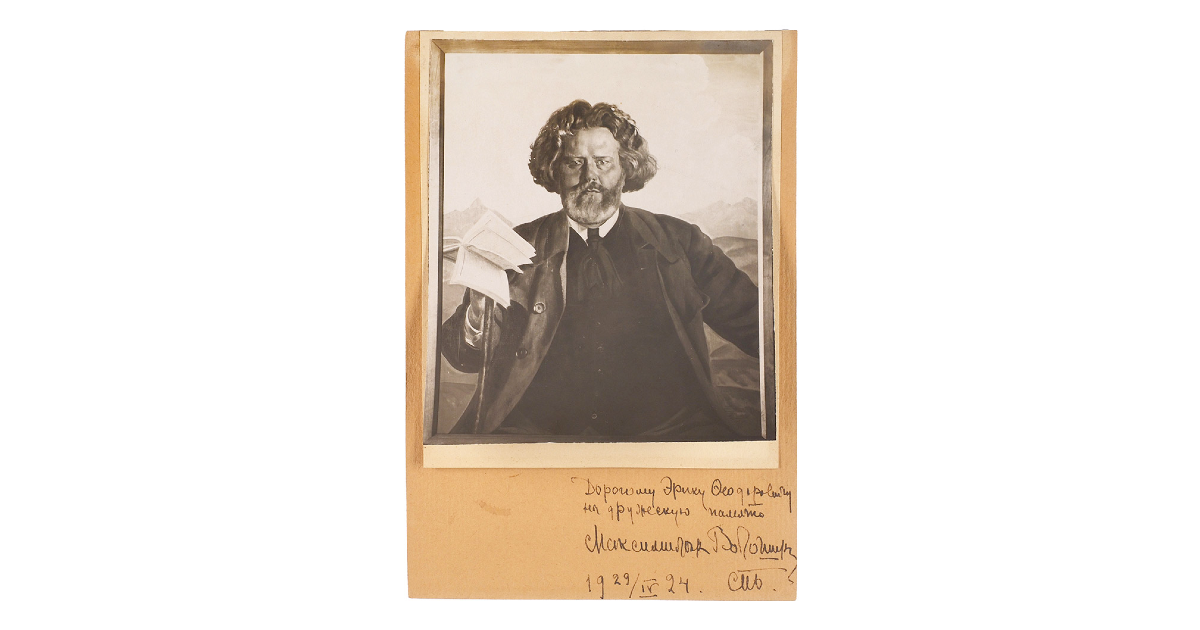 Дорогому Эрику Ѳеодоровичу
на дружескую память
Максимилиан Волошин
19 29/IV 24. СПб.